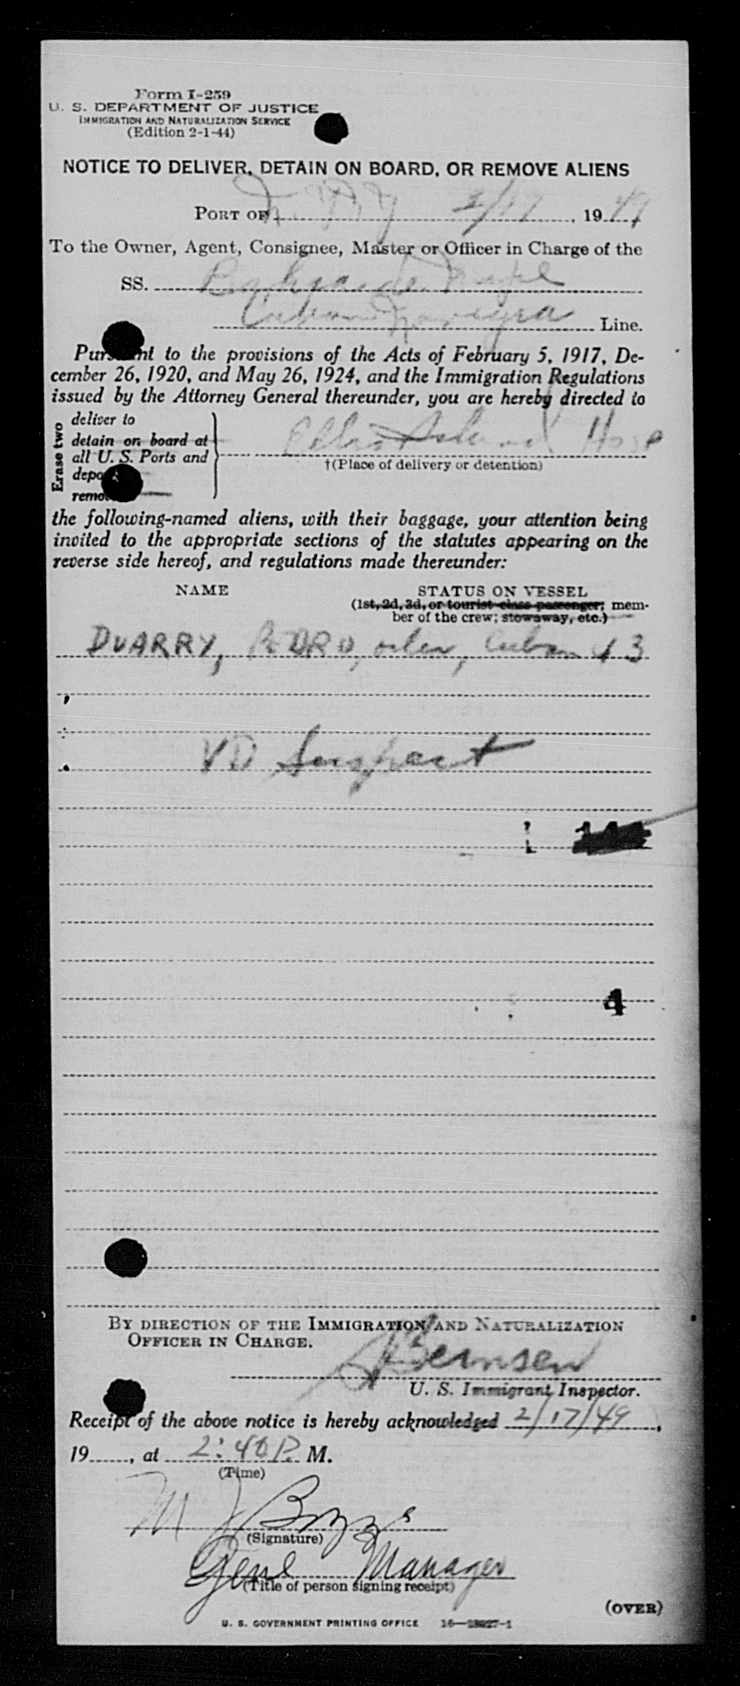 Form I-259
U. S. DEPARTMENT OF JUSTICE
IMMIGRATION AND NATURALIZATION SERVICE
(Edition 2-1-44)
NOTICE TO DELIVER, DETAIN ON BOARD, OR REMOVE ALIENS
PORT OF N.Y. 2/17, 1949
To the Owner, Agent, Consignee, Master or Officer in Charge of the
SS. Bahia de Nipe
Cuban Line.
Pursuant to the provisions of the Acts of February 5, 1917, De-
cember 26, 1920, and May 26, 1924, and the Immigration Regulations
issued by the Attorney General thereunder, you are hereby directed to
Erase two
deliver to
detain on board at
all U. S. Ports and
depo
remo
Ellis Island Hosp
†(Place of delivery or detention)
the following-named aliens, with their baggage, your attention being
invited to the appropriate sections of the statutes appearing on the
reverse side hereof, and regulations made thereunder:
NAME STATUS ON VESSEL
(1st, 2d, 3d, or tourist class passenger; mem-
ber of the crew; stowaway, etc.)
DUARRY, PEDRO, oiler, Cuban 43
VD Suspect
4
BY DIRECTION OF THE IMMIGRATION AND NATURALIZATION
OFFICER IN CHARGE.
U. S. Immigrant Inspector.
Receipt of the above notice is hereby acknowledged 2/17/49,
19......, at 2:40 P. M.
(Time)
M J
(Signature)
Genl Manager
(Title of person signing receipt)
(OVER)
U. S. GOVERNMENT PRINTING OFFICE 16—18927-1